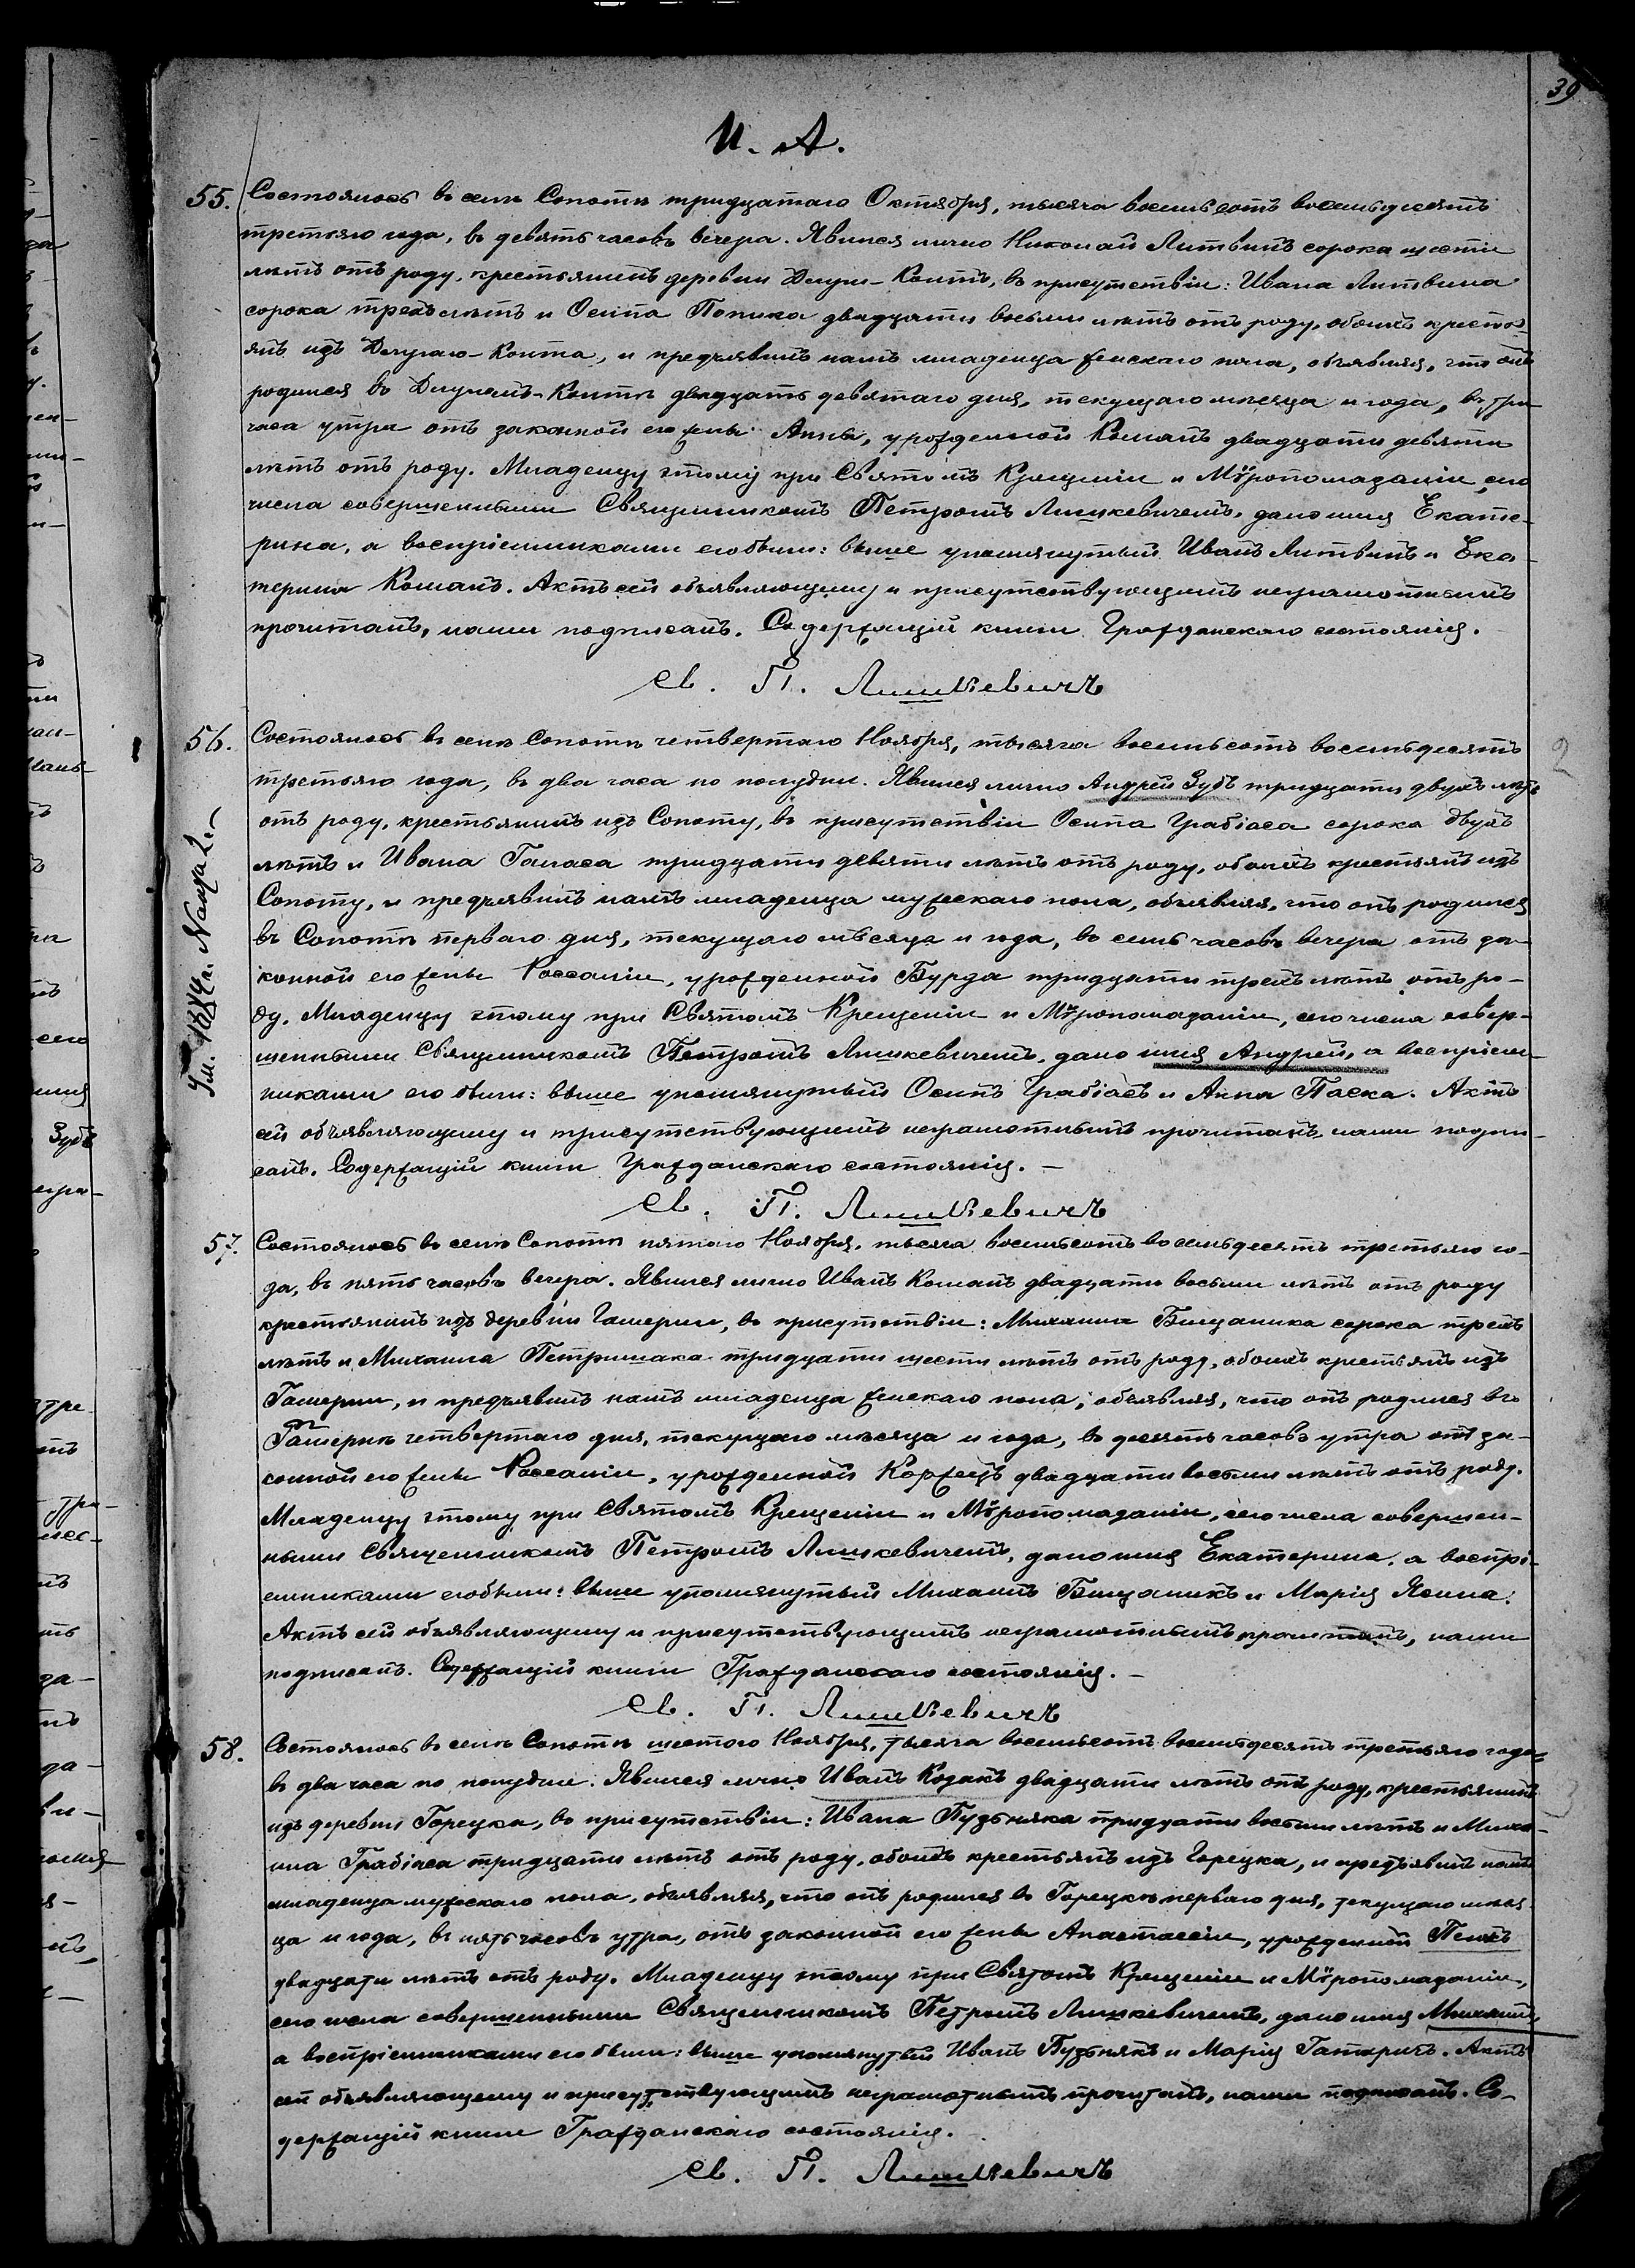 39
И. А.
55. Состоялось въ селѣ Сопотѣ тридцатаго Октября, тысяча восемьсотъ восемьдесятъ
третьяго года, въ девять часовъ вечера. Явился лично Николай Литвинъ сорока шести
лѣтъ отъ роду, крестьянинъ деревни Длуги-Контъ, въ присутствіи: Ивана Литвина
сорока трехъ лѣтъ и Осипа Попика двадцати восьми лѣтъ отъ роду, обоихъ кресть-
янъ изъ Длугаго-Конта, и предъявилъ намъ младенца женскаго пола, объявляя, что онъ
родился въ Длугомъ-Контѣ двадцать девятаго дня, текущаго мѣсяца и года, въ три
часа утра отъ законной его жены Анны, урожденной Команъ двадцати девяти
лѣтъ отъ роду. Младенцу этому при Святомъ Крещеніи и Мѵропомазаніи, сего
числа совершенными Священникомъ Петромъ Лишкевичемъ, дано имя Екате-
рина, а воспріемниками его были: выше упомянутый Иванъ Литвинъ и Ека-
терина Команъ. Актъ сей объявляющему и присутствующимъ неграмотнымъ
прочитанъ, нами подписанъ. Содержащій книги Гражданскаго состоянія.
Св. П. Лишкевичъ
56. Состоялось въ селѣ Сопотѣ четвертаго Ноября, тысяча восемьсотъ восемьдесятъ
2
третьяго года, въ два часа по полудни. Явился лично Андрей Зубъ тридцати двухъ лѣтъ
отъ роду, крестьянинъ изъ Сопоту, въ присутствіи Осипа Грабіаса сорока двухъ
лѣтъ и Ивана Галаса тридцати девяти лѣтъ отъ роду, обоихъ крестьянъ изъ
Сопоту, и предъявилъ намъ младенца мужескаго пола, объявляя, что онъ родился
въ Сопотѣ перваго дня, текущаго мѣсяца и года, въ семь часовъ вечера отъ за-
конной его жены Розаліи, урожденной Бурда тридцати трехъ лѣтъ отъ ро-
ду. Младенцу этому при Святомъ Крещеніи и Мѵропомазаніи, сего числа совер-
шенными Священникомъ Петромъ Лишкевичемъ, дано имя Андрей, а воспріем-
никами его были: выше упомянутый Осипъ Грабіасъ и Анна Паска. Актъ
сей объявляющему и присутствующимъ неграмотнымъ прочитанъ, нами подпи-
санъ. Содержащій книги Гражданскаго состоянія. —
Св. П. Лишкевичъ
57. Состоялось въ селѣ Сопотѣ пятаго Ноября, тысяча восемьсотъ восемьдесятъ третьяго го-
да, въ пять часовъ вечера. Явился лично Иванъ Команъ двадцати восьми лѣтъ отъ роду
крестьянинъ изъ деревни Гамерни, въ присутствіи: Михаила Бищаника сорока трехъ
лѣтъ и Михаила Петришака тридцати шести лѣтъ отъ роду, обоихъ крестьянъ изъ
Гамерни, и предъявилъ намъ младенца женскаго пола, объявляя, что онъ родился въ
Гамернѣ четвертаго дня, текущаго мѣсяца и года, въ десять часовъ утра отъ за-
конной его жены Розаліи, урожденной Коржецъ двадцати восьми лѣтъ отъ роду.
Младенцу этому при Святомъ Крещеніи и Мѵропомазаніи, сего числа совершен-
ными Священникомъ Петромъ Лишкевичемъ, дано имя Екатерина, а воспрі-
емниками его были: выше упомянутый Михаилъ Бищаникъ и Марія
Актъ сей объявляющему и присутствующимъ неграмотнымъ прочитанъ, нами
подписанъ. Содержащій книги Гражданскаго состоянія. —
Св. П. Лишкевичъ
58. Состоялось въ селѣ Сопотѣ шестого Ноября, тысяча восемьсотъ восемьдесятъ третьяго года
въ два часа по полудни. Явился лично Иванъ Козакъ двадцати лѣтъ отъ роду, крестьянинъ
изъ деревни Горецка, въ присутствіи: Ивана Пузьняка тридцати восьми лѣтъ и Миха-
ила Грабіаса тридцати лѣтъ отъ роду, обоихъ крестьянъ изъ Горецка, и предъявилъ намъ
младенца мужескаго пола, объявляя, что онъ родился въ Горецкѣ перваго дня, текущаго мѣся-
ца и года, въ пять часовъ утра, отъ законной его жены Анастасіи, урожденной
двадцати лѣтъ отъ роду. Младенцу этому при Святомъ Крещеніи и Мѵропомазаніи,
сего числа совершенными Священникомъ Петромъ Лишкевичемъ, дано имя Михаилъ,
а воспріемниками его были: выше упомянутый Иванъ Пузьнякъ и Марія Гатаричъ. Актъ
сей объявляющему и присутствующимъ неграмотнымъ прочитанъ, нами подписанъ. Со-
держащій книги Гражданскаго состоянія.
Св. П. Лишкевичъ